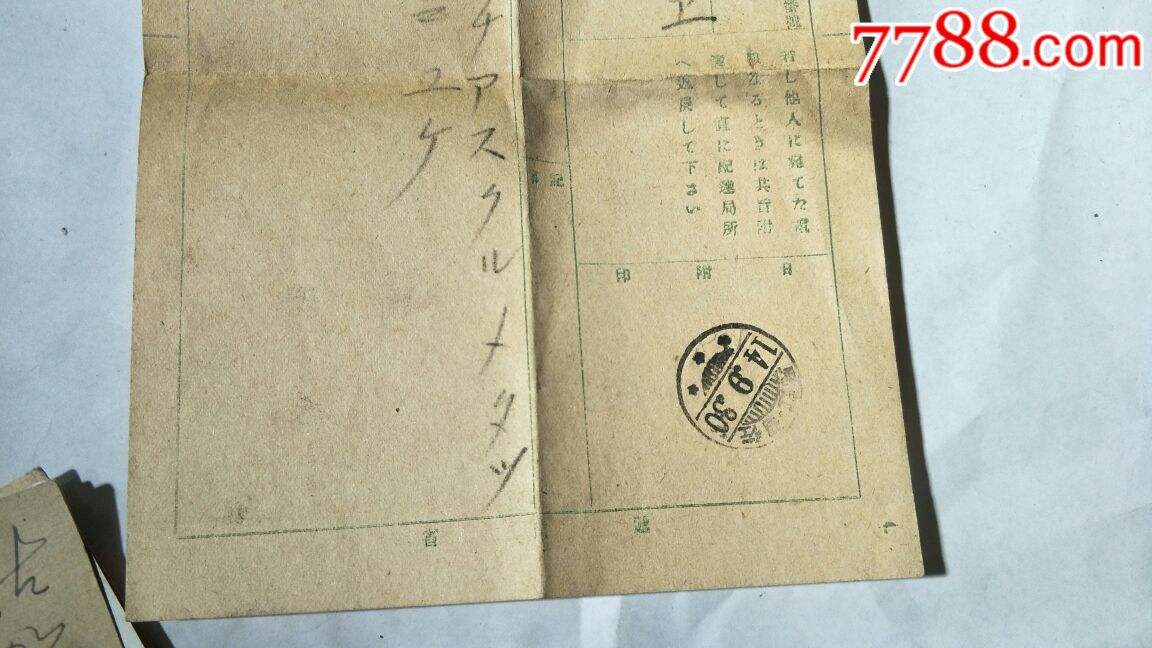 7788.com
上
若し他人に宛てた電
報なるときは其旨附
箋して直に配達局所
へ返戻して下さい
日附印
14.9.30
記事
チアスクルメタツ
ニユケ
省